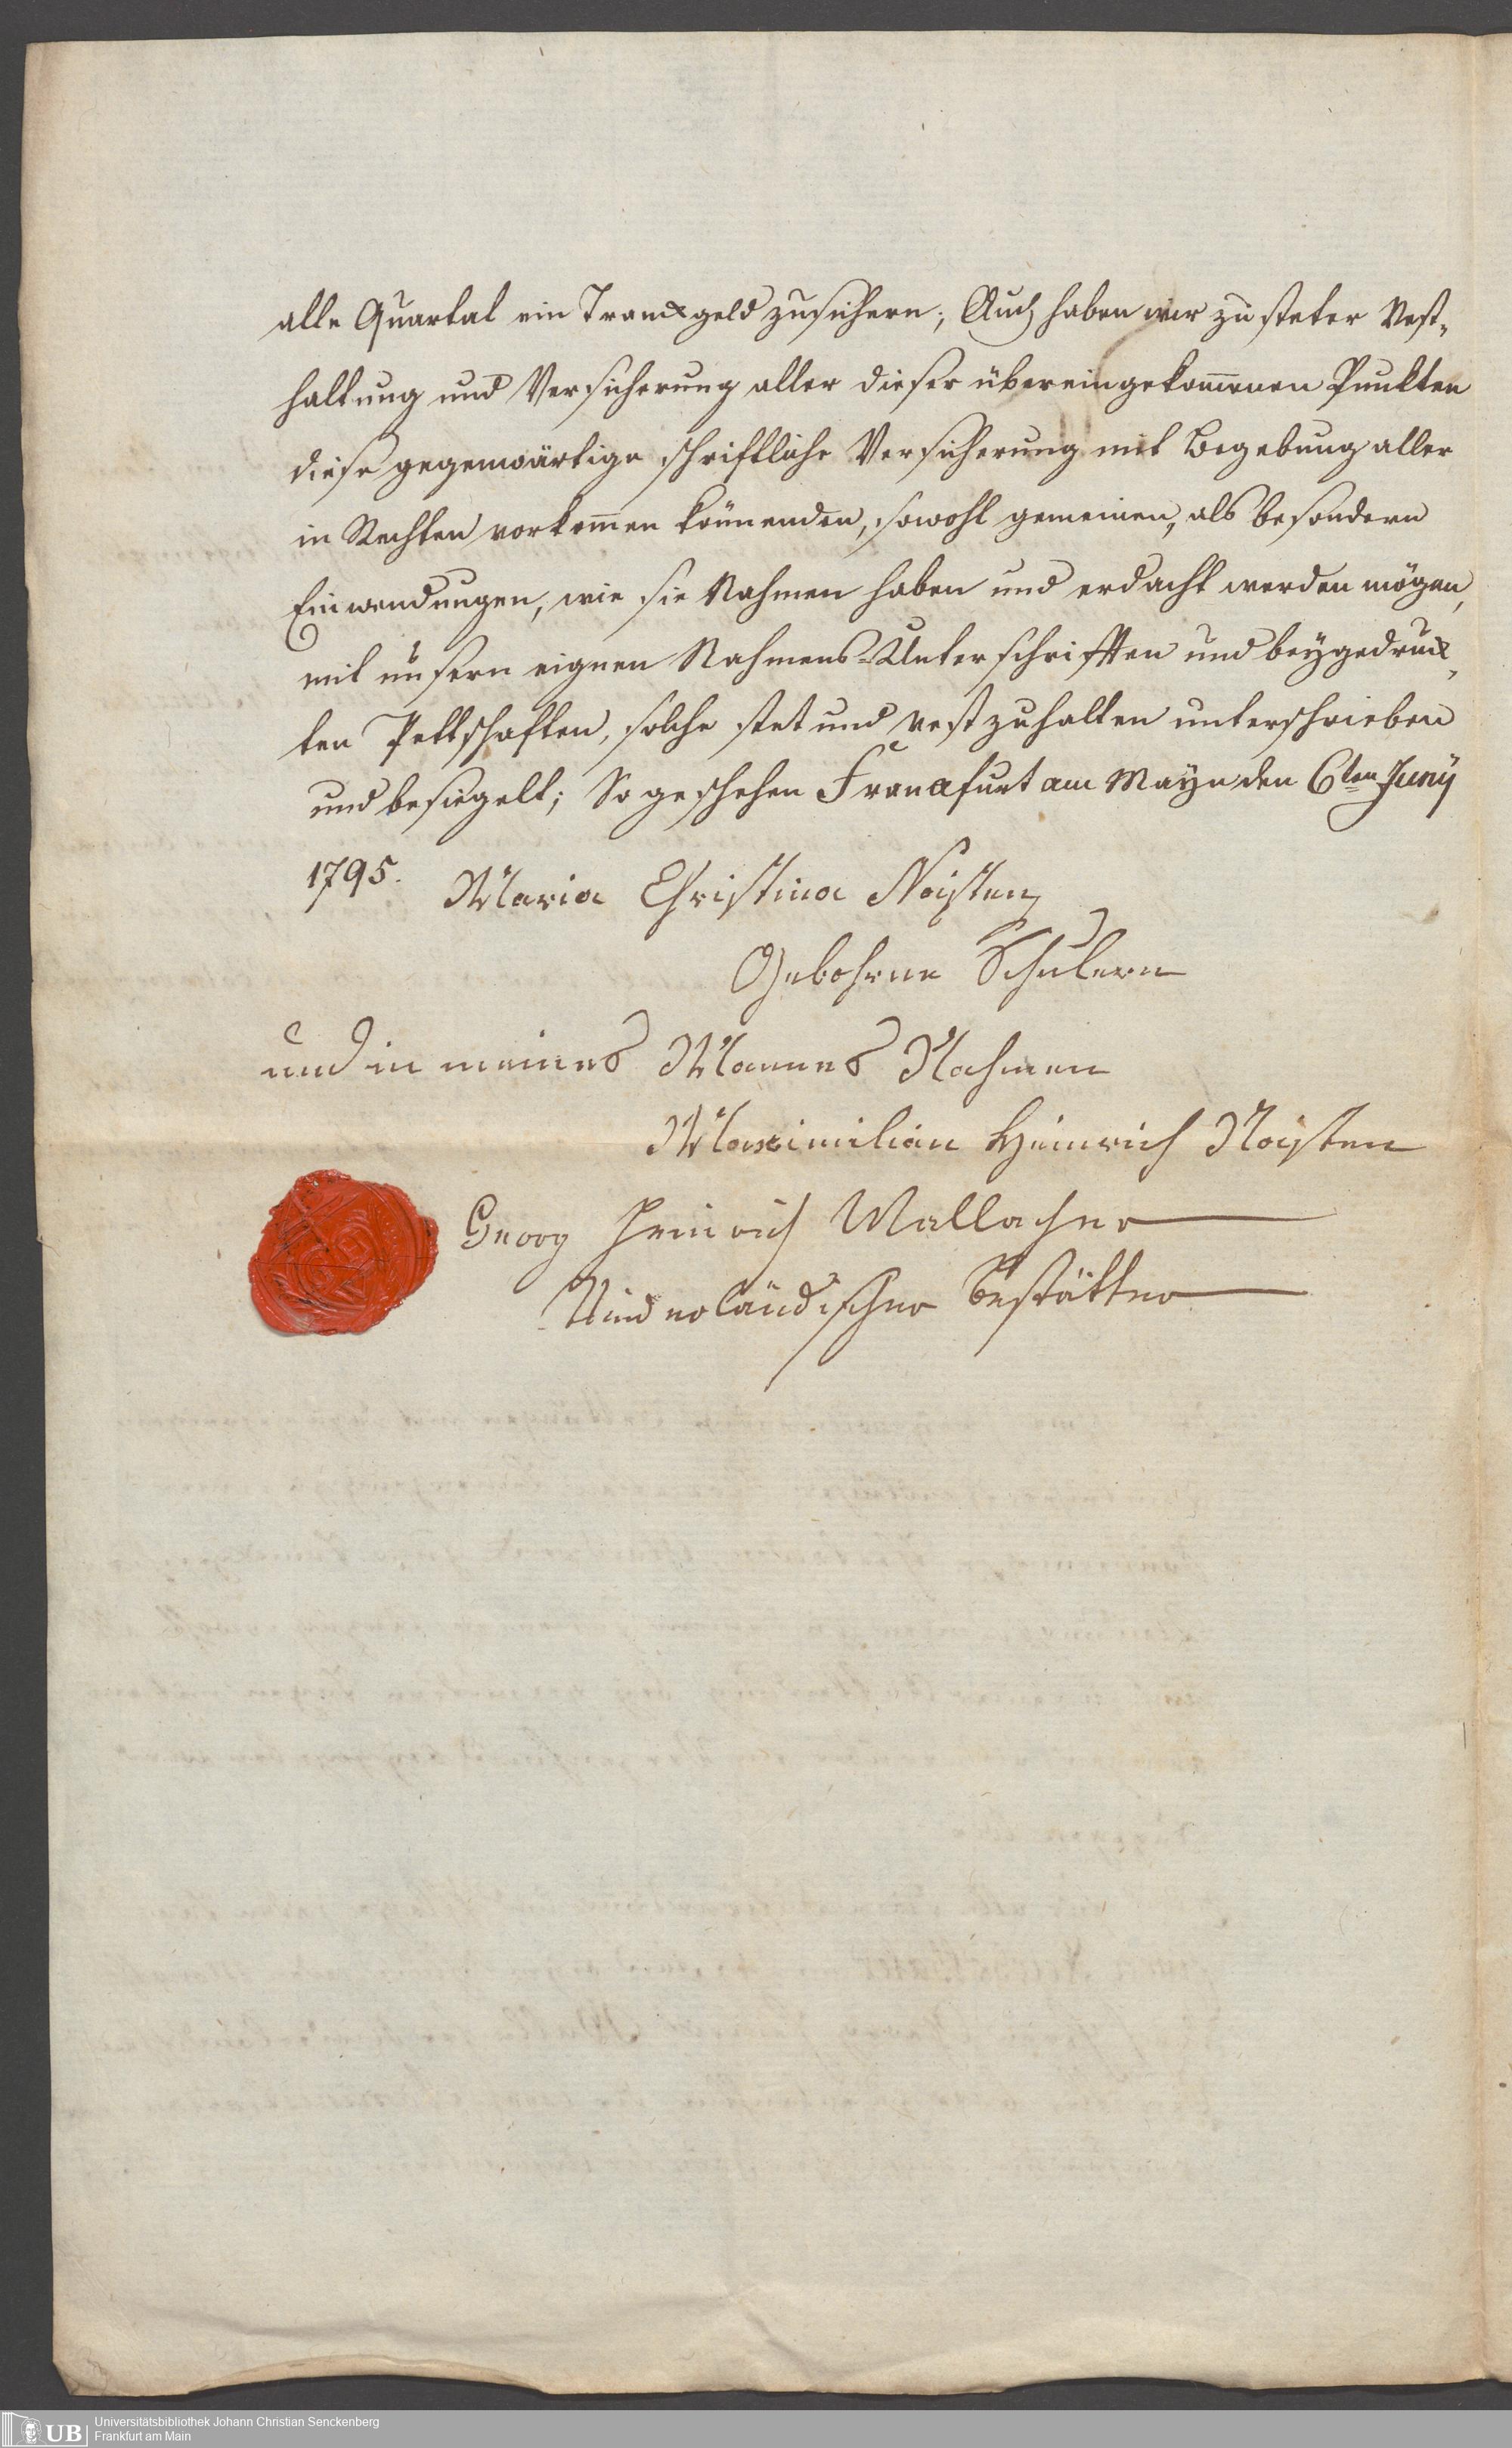 alle Quartal ein Tranckgeld zusichern; Auch haben wir zu steter Vest„
haltung und Versicherung aller dieser übereingekom̅enen Punkten
diese gegenwärtige schriftliche Versicherung mit Begebung aller
in Rechten vorkom̅en könnenden, sowohl gemeinen, als besondern
Einwendungen, wie sie Nahmen haben und erdacht werden mögen,
mit unsern eignen Nahmens-Unterschrifften und beygedruck„
ten Pettschaften, solche stet und vest zu halten unterschrieben
und besiegelt; So geschehen Franckfurt am Mayn den 6ten Juny
1795. Maria Christina Noisten
Gebohrne Schulern
und in meines Mannes Nahmen
Maximilian Heinrich Noisten
Georg Heinrich Wallacher
Niederländischer Bestätter
UB
Universitätsbibliothek Johann Christian Senckenberg
Frankfurt am Main